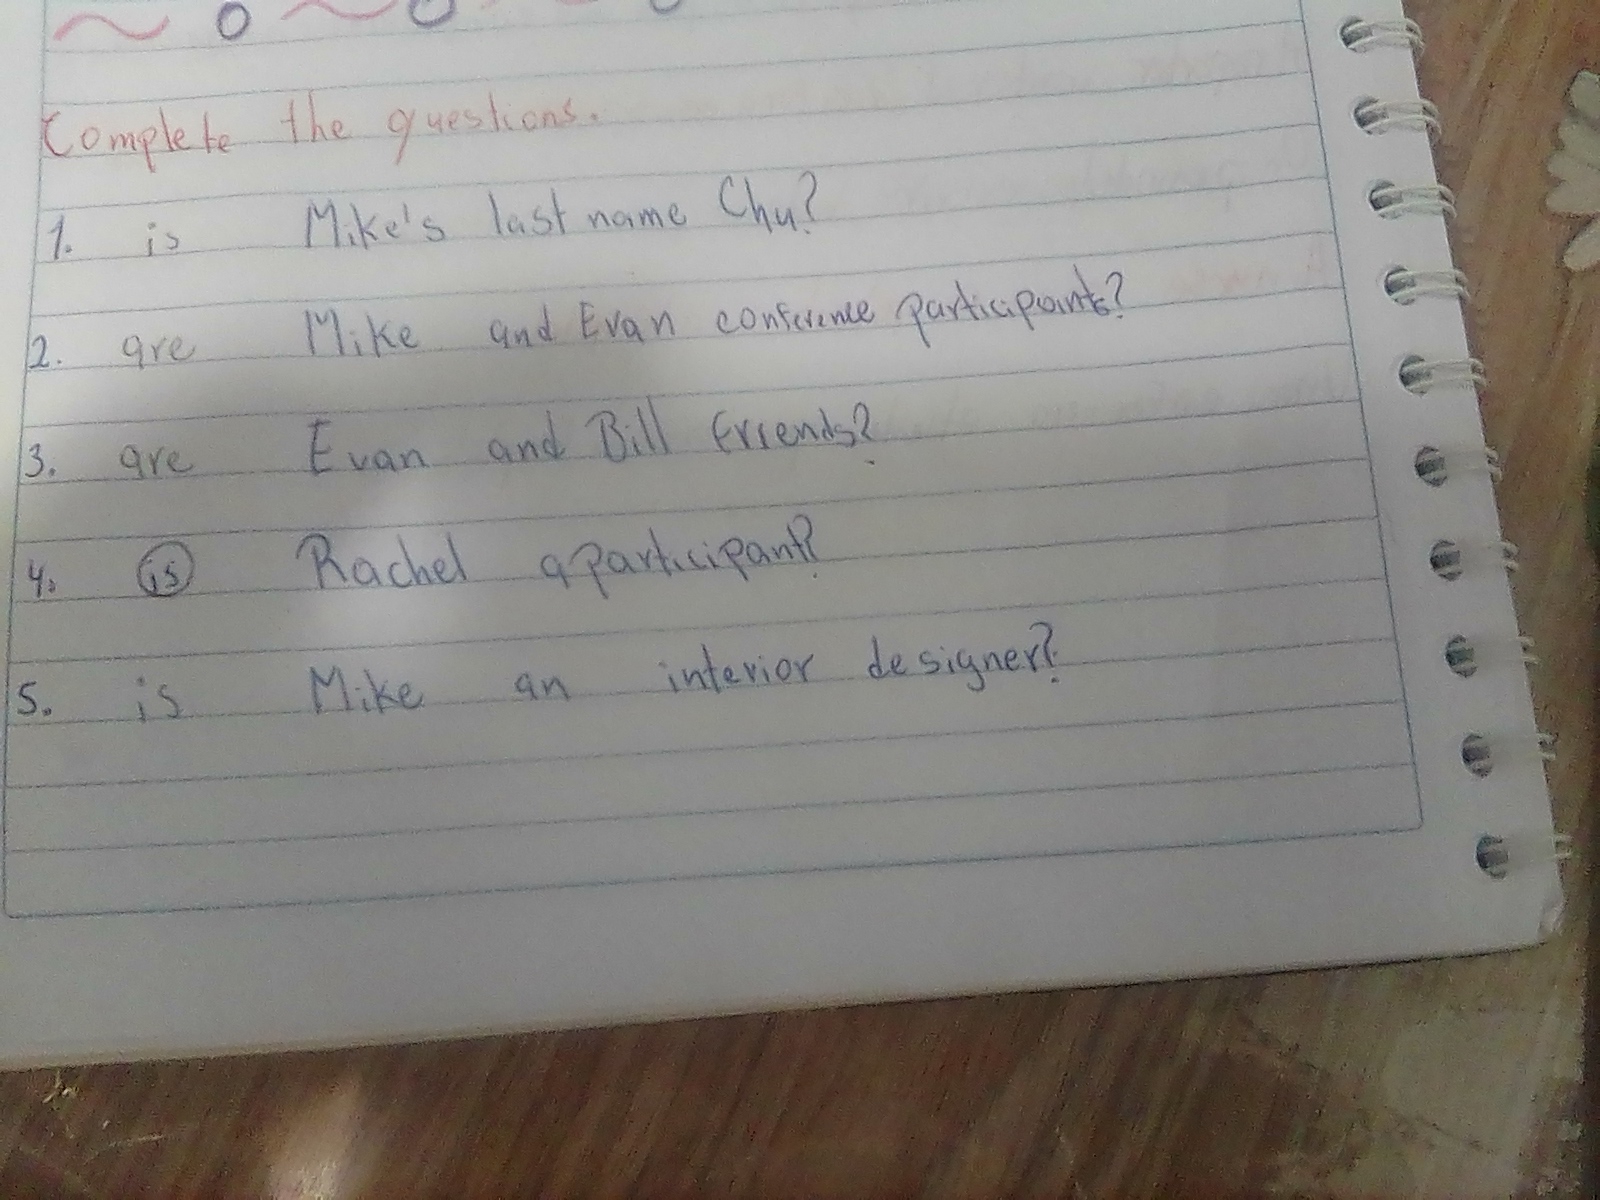 Complete the questions.
1. is Mike's last name Chu?
2. are Mike and Evan conference participants?
3. are Evan and Bill friends?
4. is Rachel a participant?
5. is Mike an interior designer?